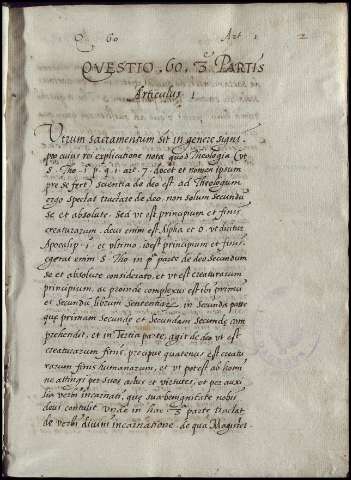 Q 60 Art 1 2
QVESTIO .60. 3ae PARTIS
Articulus 1
Vtrum sacramentum sit in genere signi.
pro cuius rei explicatione nota quod Theologia (vt
S. Tho. 1 p. q. 1 art. 7. docet et nomen ipsum
pre se fert) scientia de deo est. ad Theologum
ergo spectat tractare de deo. non solum secundū
se et absolute. Sed vt est principium et finis
creaturarum. deus enim est Alpha et O vt dicitur
Apocalip. 1. et vltimo. id est principium et finis.
egerat enim S. Tho in pª parte de deo secundum
se et absolute considerato. et vt est creaturarum
principium, ac proinde complexus est ibi primū
et secundū librum Sententiar. in secunda parte
que primam Secunde et Secundam Secunde com
prehendit, et in Tertia parte, agit de deo vt est
creaturarum finis, precipue quatenus est creatu
rarum finis humanarum, et vt potest ab homi
ne attingi per suos actus et virtutes, et per auxi
lia verbi incarnati, que sua benignitate nobis
deus contulit. Vnde in hac 3ª parte tractat
de verbi diuini incarnatione de qua Magister